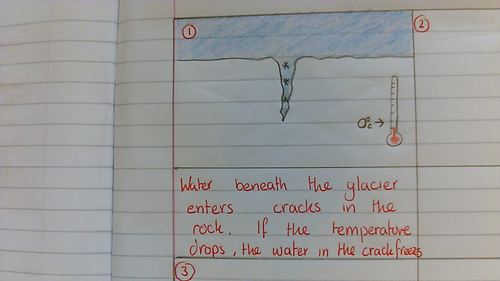 1
2
0°c →
Water beneath the glacier
enters cracks in the
rock. If the temperature
drops, the water in the crack freezes
3